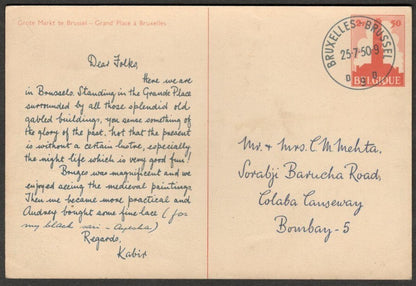 Grote Markt te Brussel - Grand' Place à Bruxelles
Dear Folks,
Here we are
in Brussels. Standing in the Grande Place
surrounded by all those splendid old
gabled buildings, you sense something of
the glory of the past, not that the present
is without a certain lustre, especially
the night life which is very good fun!
Bruges was magnificent and we
enjoyed seeing the medieval paintings.
Then we became more practical and
Audrey bought some fine lace (for
my black sari - Ayesha)
Regards,
Kabir
BRUXELLES - BRUSSEL
25-7-50-9
50
BELGIQUE
Mr. & Mrs. C M Mehta,
Sorabji Barucha Road,
Colaba Causeway
Bombay - 5